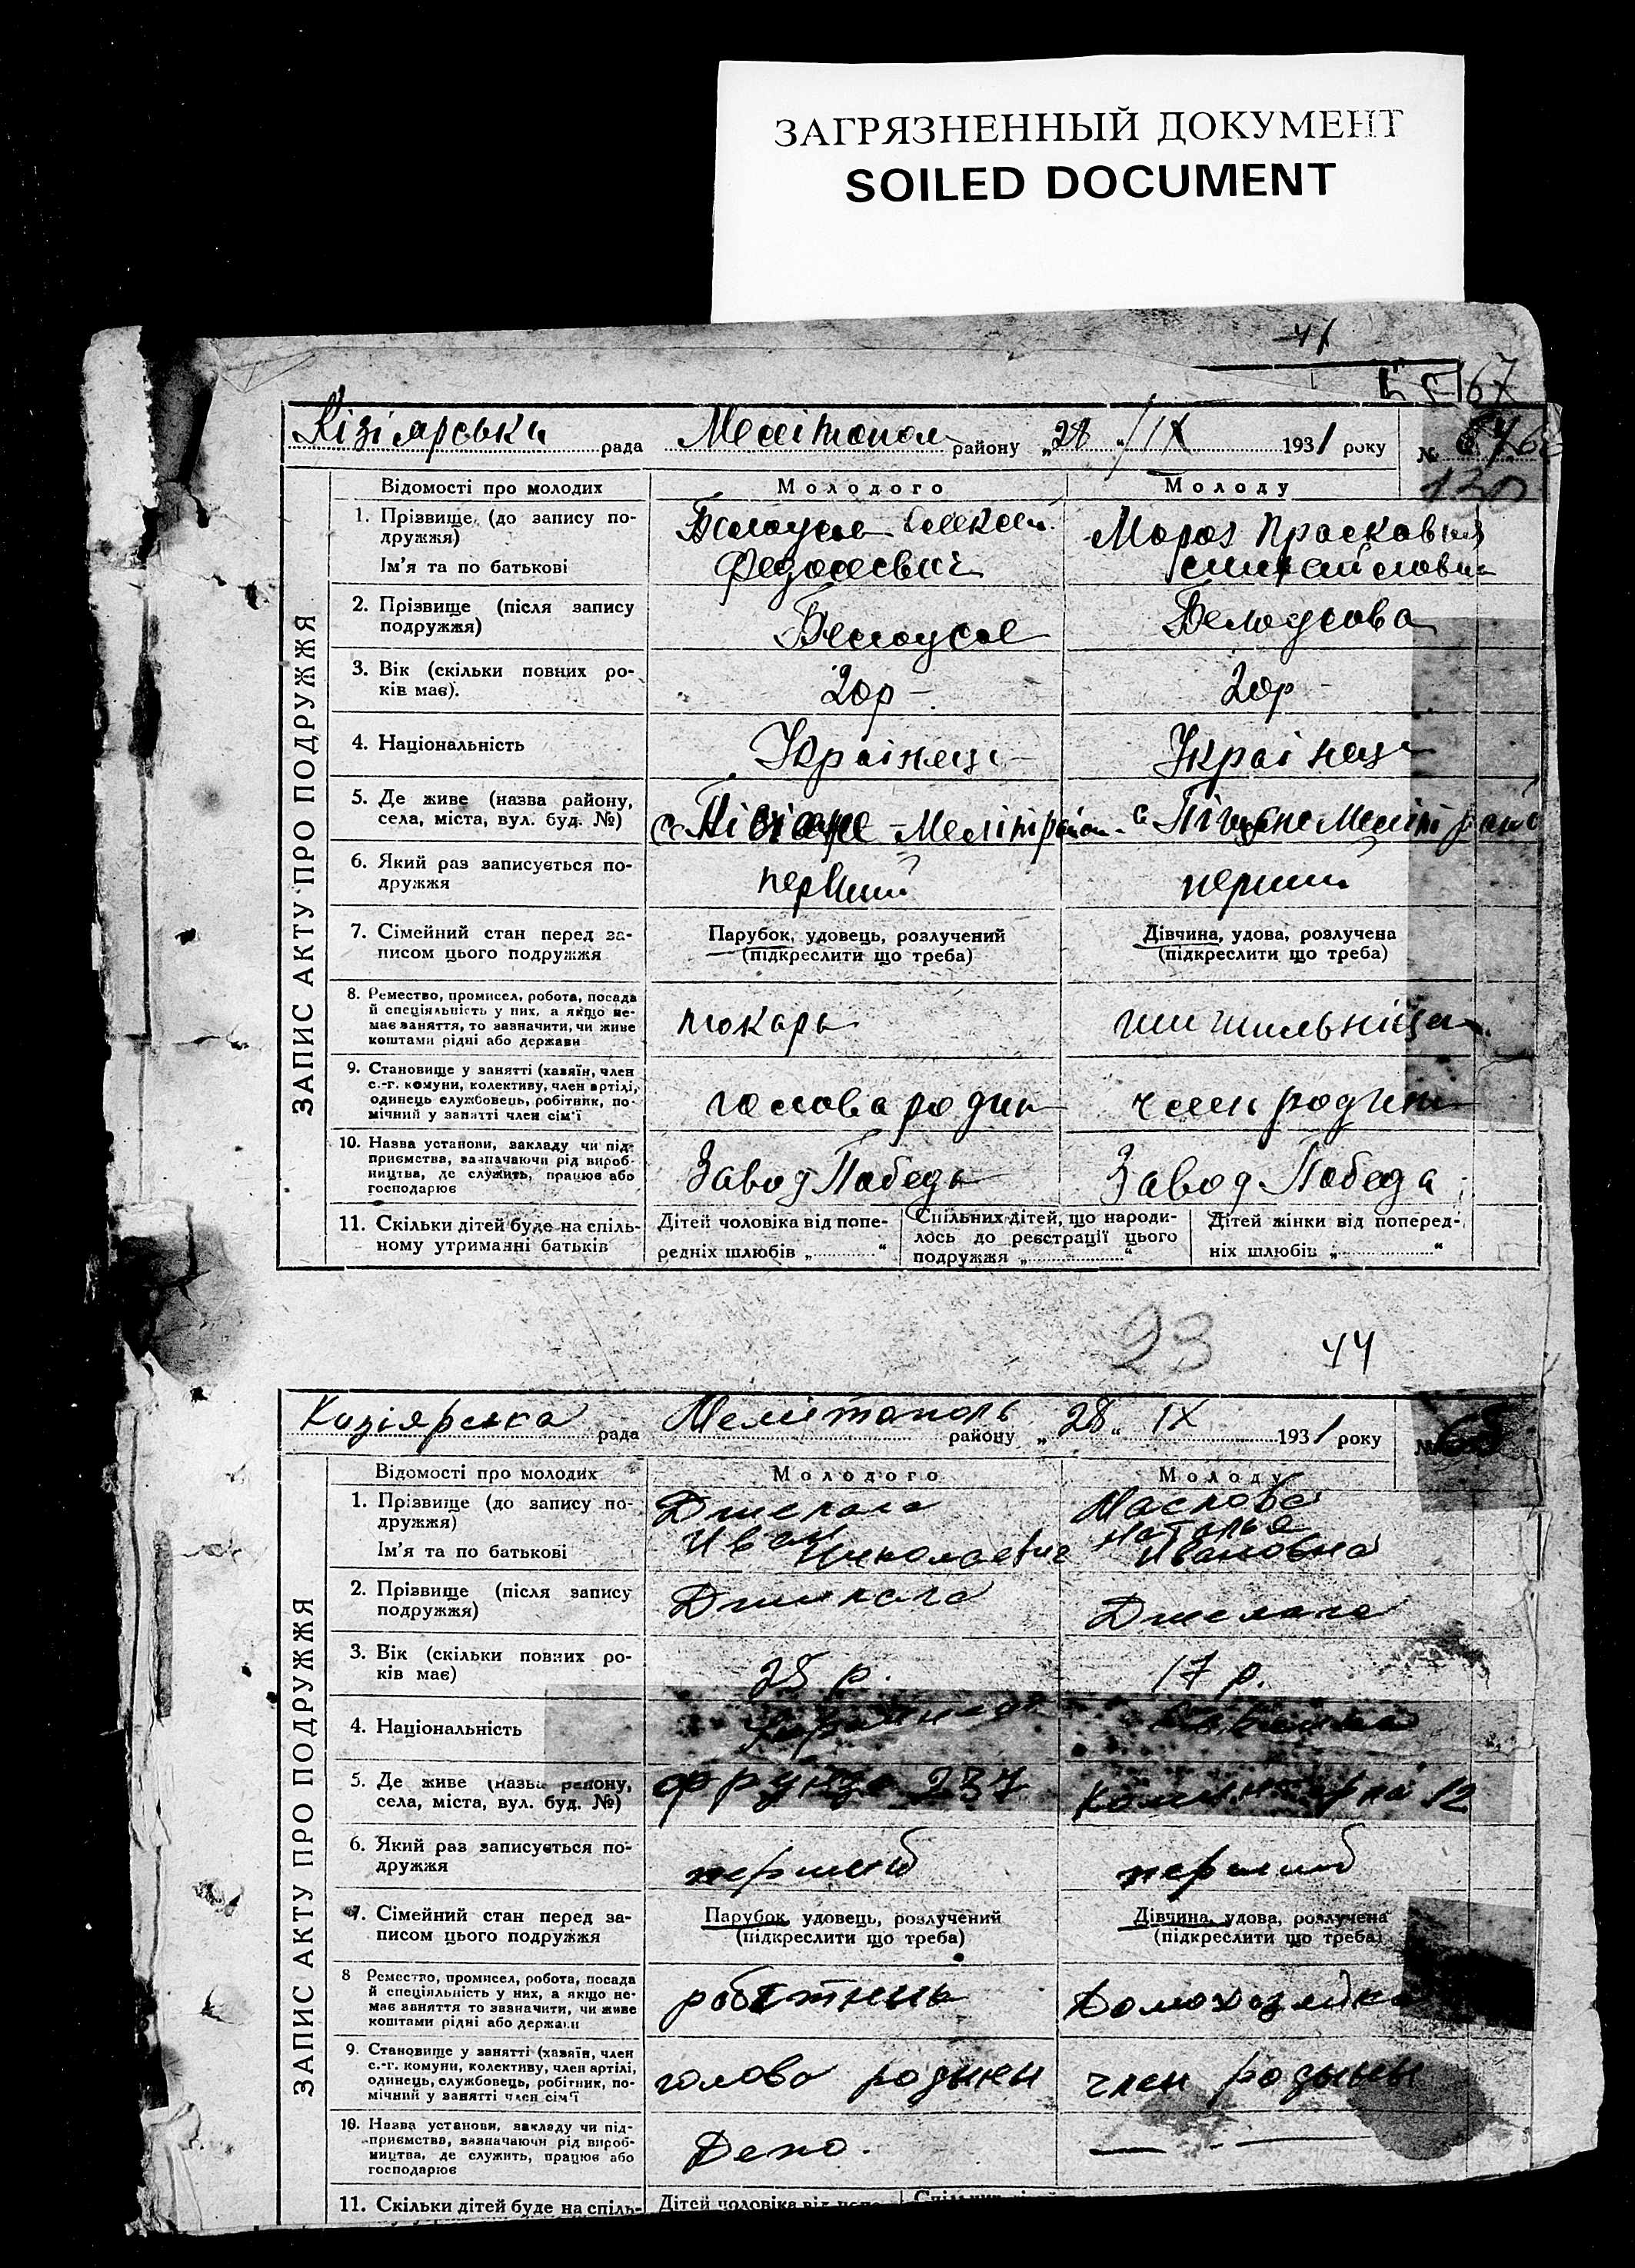 ЗАГРЯЗНЕННЫЙ ДОКУМЕНТ
SOILED DOCUMENT
41
67
Кізіярська рада Мелітопол району „28 „ /IX 1931 року №
130
ЗАПИС АКТУ ПРО ПОДРУЖЖЯ
Відомості про молодих Молодого Молоду
1. Прізвище (до запису по-
дружжя)
Ім’я та по батькові
Белоусов Алексей Мороз Прасковия
Федосеевич
2. Прізвище (після запису
подружжя)
Белоусов Белоусова
3. Вік (скільки повних ро-
ків має).
20р – 20р –
4. Національність Українець Українец
5. Де живе (назва району,
села, міста, вул. буд. №)
с Піщане Меліт район с Піщане Меліт район
6. Який раз записується по-
дружжя
первий перший
7. Сімейний стан перед за-
писом цього подружжя
Парубок, удовець, розлучений Дівчина, удова, розлучена
(підкреслити що треба) (підкреслити що треба)
8. Ремество, промисел, робота, посада
й спеціяльність у них, а якщо не-
має заняття, то зазначити, чи живе
коштами рідні або держави
токарь шишильниця
9. Становище у занятті (хазяїн, член
с.-г. комуни, колективу, член артілі,
одинець службовець, робітник, по-
мічний у занятті член сім’ї
голова родин член родини
10. Назва установи, закладу чи під-
приємства, зазначаючи рід вироб-
ництва, де служить, працює або
господарює
Завод Победы Завод Победа
11. Скільки дітей буде на спіль-
ному утриманні батьків
Дітей чоловіка від попе-
редніх шлюбів „ “
Спільних дітей, що народи-
лось до реєстрації цього
подружжя „ “
Дітей жінки від поперед-
ніх шлюбів „ “
93 44
Кизіярска рада Мелітополь району „28 “ IX 1931 року № 68
ЗАПИС АКТУ ПРО ПОДРУЖЖЯ
Відомості про молодих Молодого Молоду
1. Прізвище (до запису по-
дружжя)
Ім’я та по батькові
Джелага Маслова
Иван Наталья
Николаевич Ивановна
2. Прізвище (після запису
подружжя)
Джелага Джелага
3. Вік (скільки повних ро-
ків має)
28 р. 17 р.
4. Національність
5. Де живе (назва району,
села, міста, вул. буд. №)
Фрунзе 237 12
6. Який раз записується по-
дружжя
перший перший
7. Сімейний стан перед за-
писом цього подружжя
Парубок, удовець, розлучений Дівчина, удова, розлучена
(підкреслити що треба) (підкреслити що треба)
8 Ремество, промисел, робота, посада
й спеціяльність у них, а якщо не-
має заняття то зазначити, чи живе
коштами рідні або держави
робітник Домохозяйка
9. Становище у занятті (хазяїн, член
с.-г. комуни, колективу, член артілі,
одинець, службовець, робітник, по-
мічний у занятті член сім’ї
голова родини член родыны
10. Назва установи, закладу чи під-
приємства, зазначаючи рід вироб-
ництва, де служить, працює або
господарює
Депо. —
11. Скільки дітей буде на спіль- Дітей чоловіка від попе-